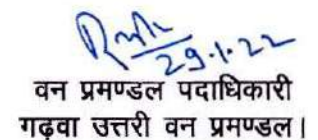 29.1.22
वन प्रमण्डल पदाधिकारी
गढ़वा उत्तरी वन प्रमण्डल।